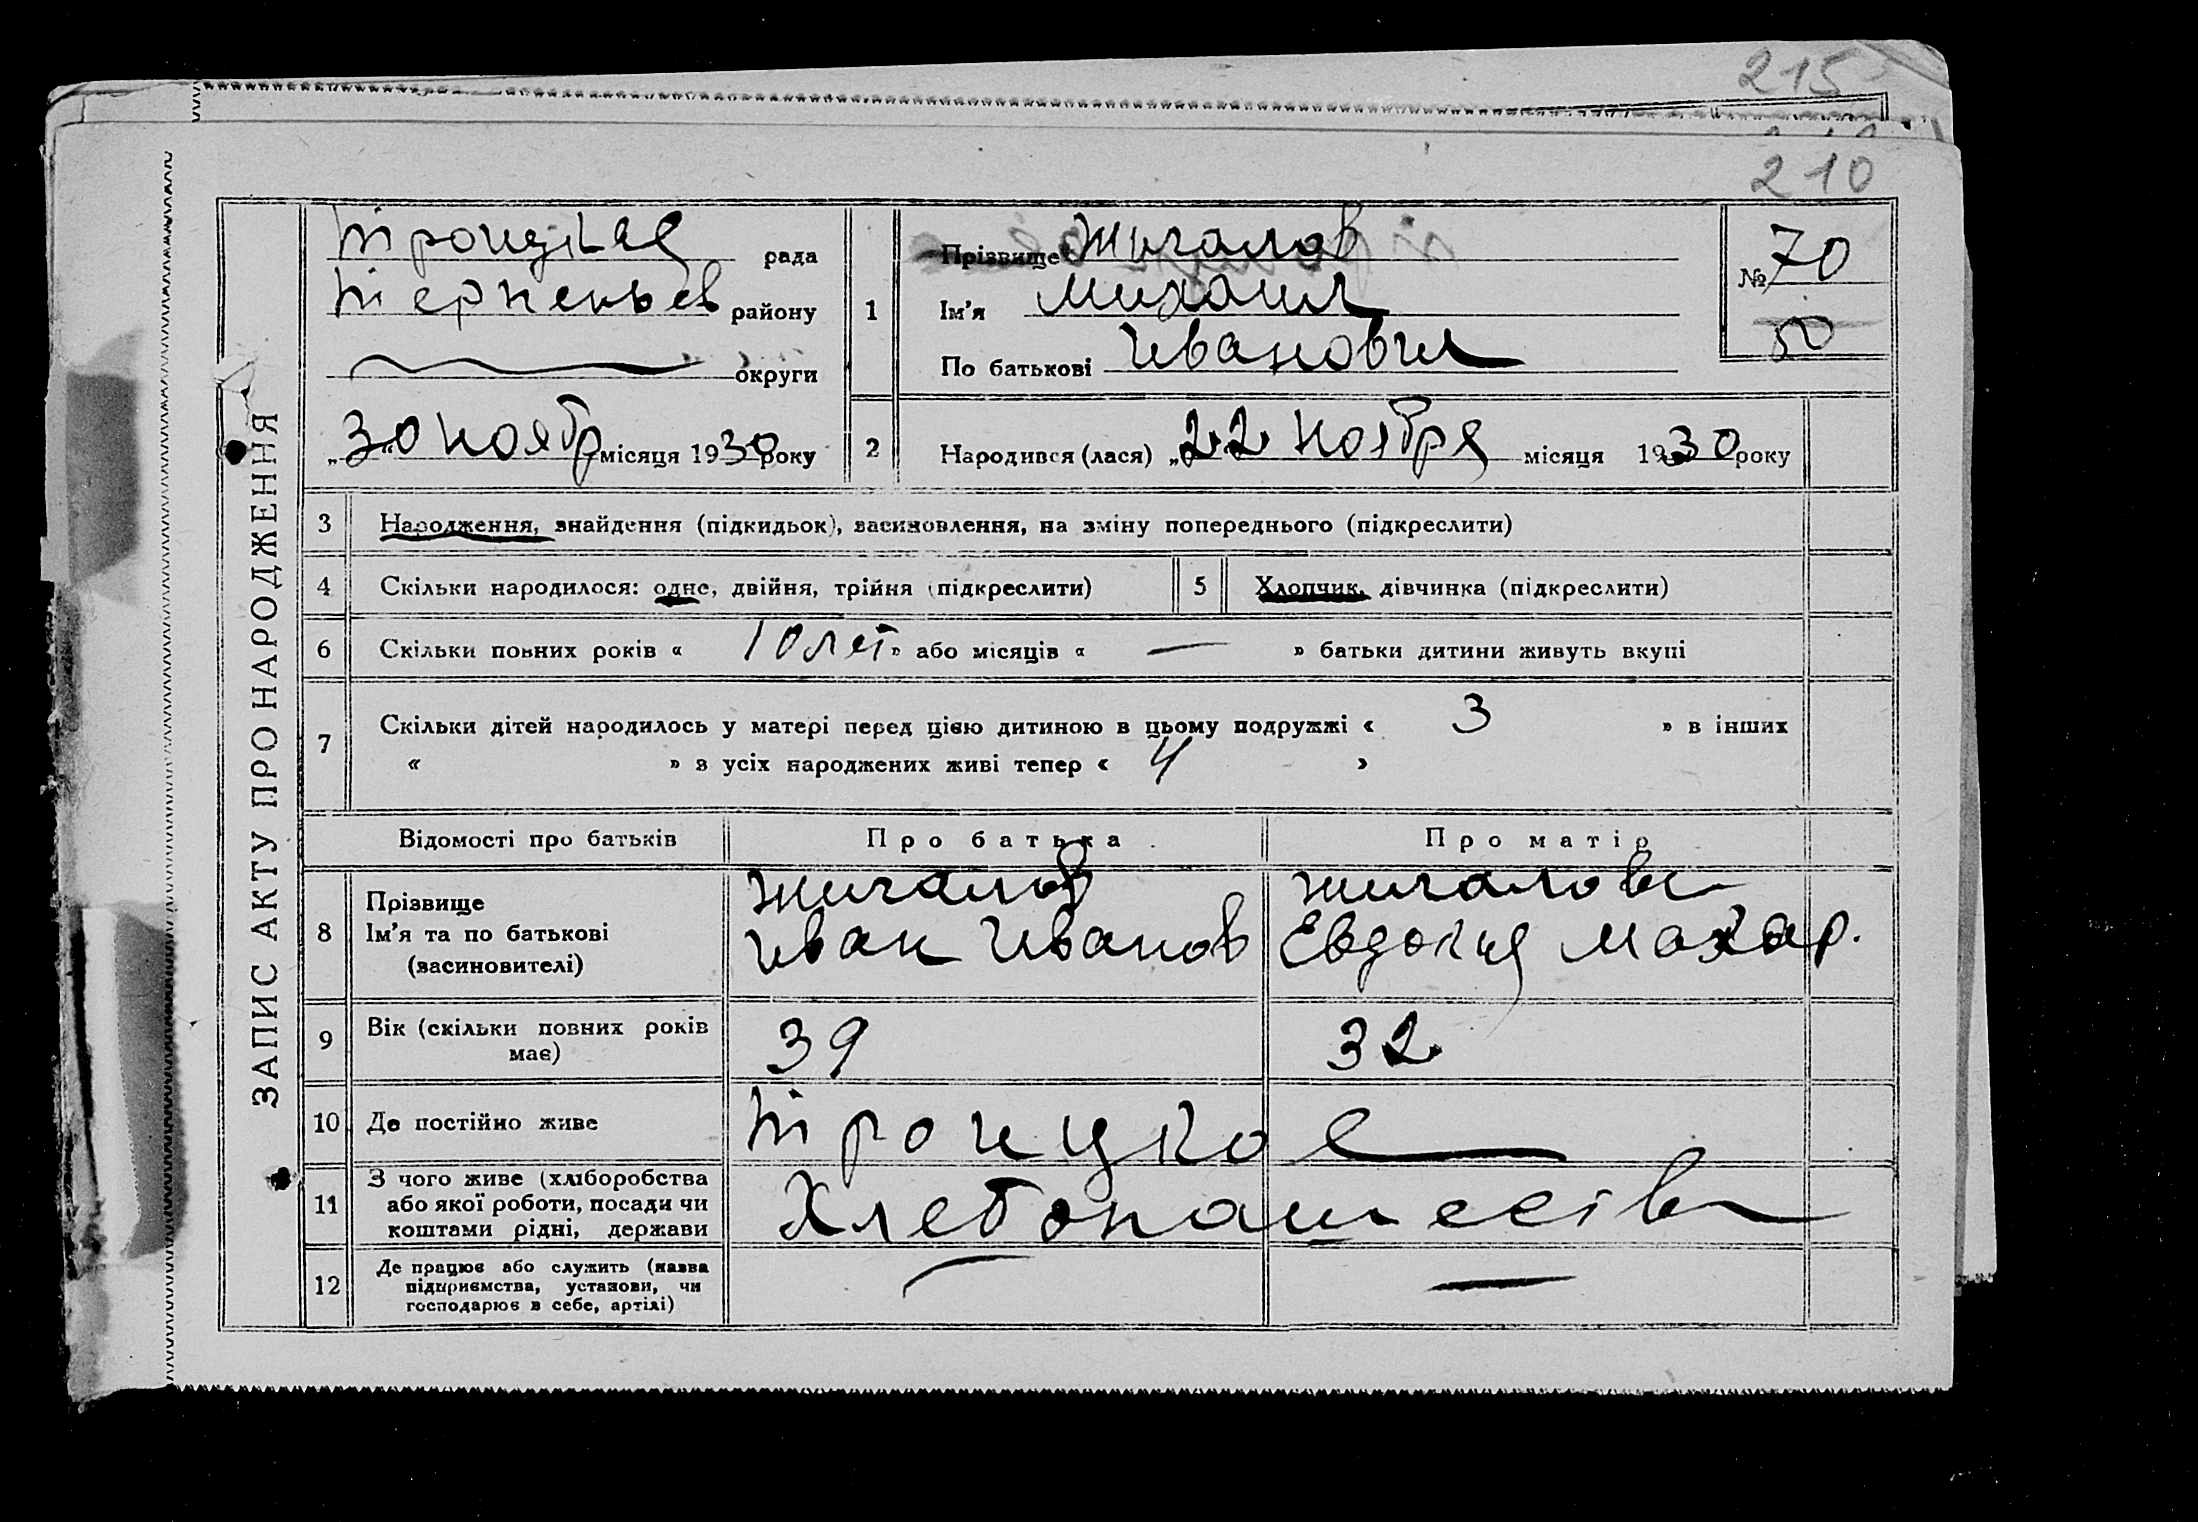 215
210
ЗАПИС АКТУ ПРО НАРОДЖЕННЯ
Троицкая рада
Терпеньев району
округи
„30 ноябр місяця 1930 року
1
Прізвище Жигалов
Ім'я Михаил
По батькові Иванович
№ 70
50
2
Народився (лася) „22 ноября місяця 1930 року
3 Народження, знайдення (підкидьок), засиновлення, на зміну попереднього (підкреслити)
4 Скільки народилося: одне, двійня, трійня (підкреслити) 5 Хлопчик, дівчинка (підкреслити)
6 Скільки повних років « 10 лет » або місяців « — » батьки дитини живуть вкупі
7 Скільки дітей народилось у матері перед цією дитиною в цьому подружжі « 3 » в інших
« » з усіх народжених живі тепер « 4 »
Відомості про батьків Про батька Про матір
8 Прізвище
Ім'я та по батькові
(засиновителі)
Жигалов
Иван Иванов
Жигалова
Евдокия Макар.
9 Вік (скільки повних років
має)
39 32
10 Де постійно живе Троицкое
11 З чого живе (хліборобства
або якої роботи, посади чи
коштами рідні, держави
Хлебопашества
12 Де працює або служить (назва
підприємства, установи, чи
господарює в себе, артілі)
— —